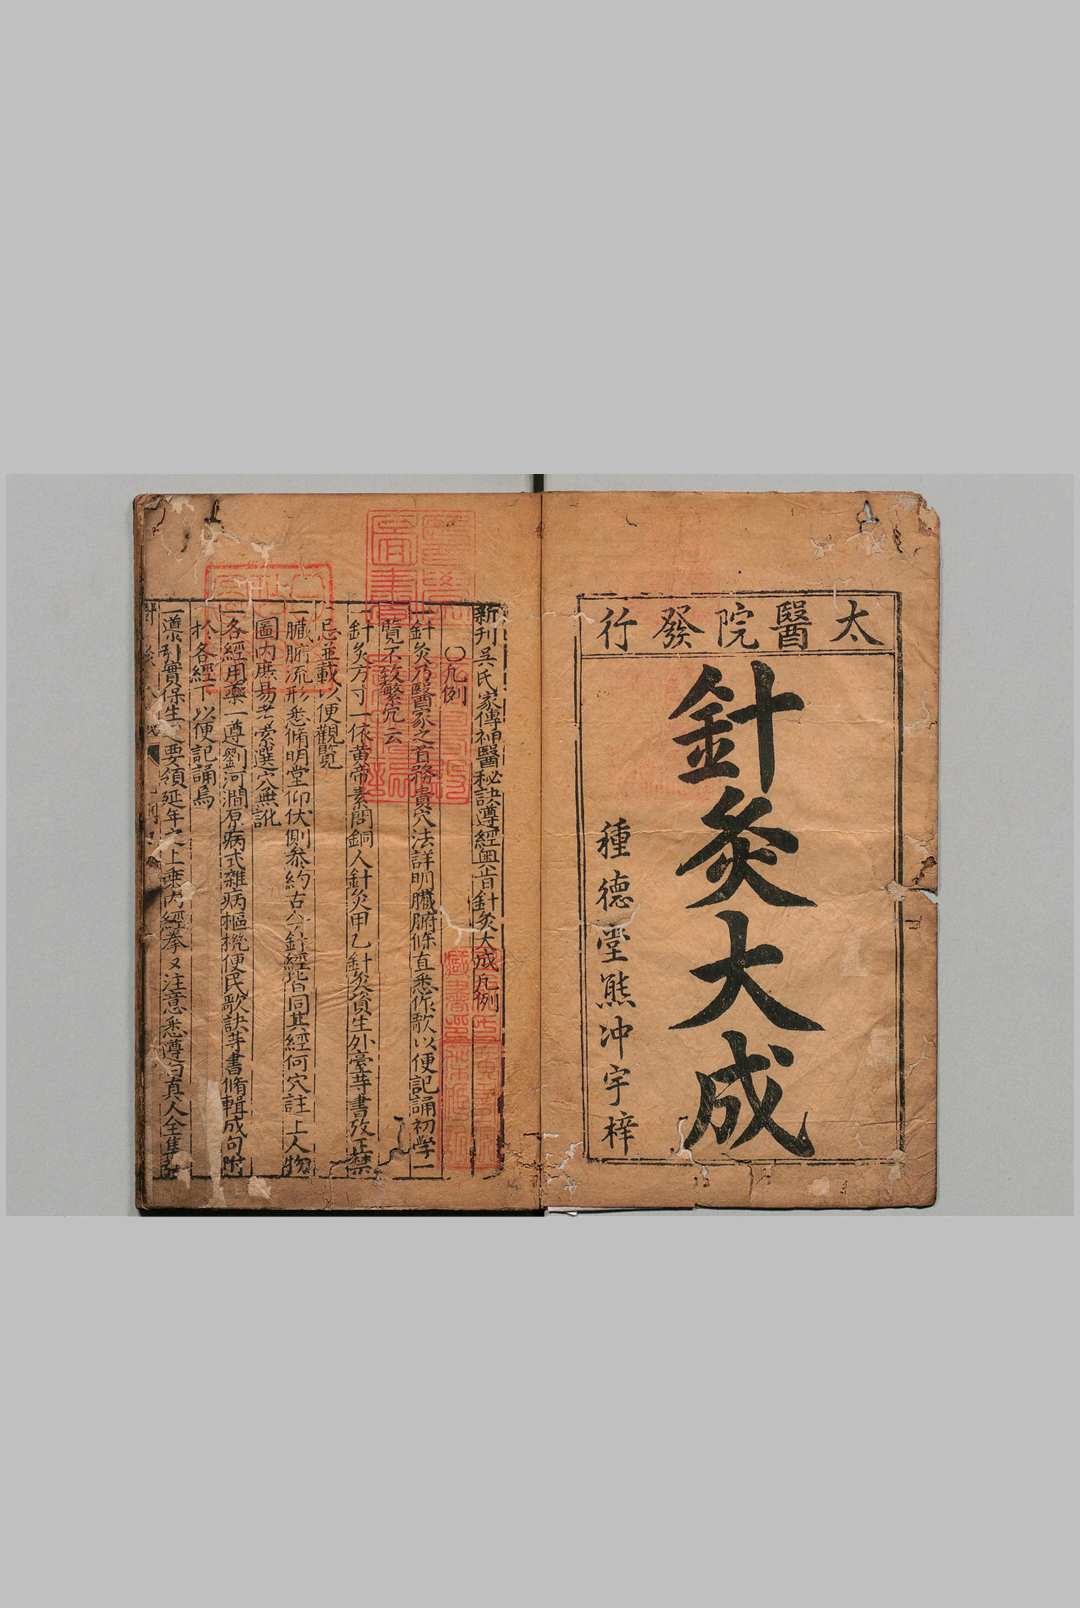 太醫院發行
針灸大成
種德堂熊冲宇梓
新刊吳氏家傳神醫秘訣遵經奧旨針灸大成凡例
○凡例
一針灸乃醫家之首務貴穴法詳明臟腑條直悉作歌以便記誦初學一
覽不致繁冗云
一針灸方寸一依黃帝素問銅人針灸甲乙針灸資生外臺等書攷正禁
忌並載以便觀覽
一臟腑流形悉俻明堂仰伏側叅約古今針經皆同其經何穴註上人物
圖內庶易老素選穴無訛
一各經用藥一遵劉河澗原病式雜病樞机便民歌訣等書脩輯成句附
於各經下以便記誦焉
一導引實保生之要領延年之上乘內經拳又注意悉遵白真人全集